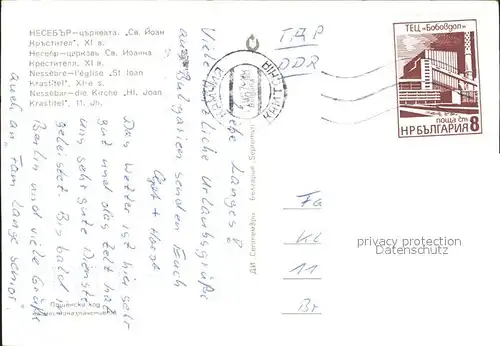 НЕСЕБЪР—църквата. „Св. Йоан
Кръстител". XI в.
Несебр—церковь Св. Иоанна
Крестителя. XI в.
Nessèbre—l'église „St Ioan
Krastitel". XI-e s.
Nessebar—die Kirche „Hl. Joan
Krastitel". 11. Jh.
Пощенски код
ДИ Септември България Septemvri
Liebe Langes!
Viele herzliche Urlaubsgrüße
aus Bulgarien senden Euch
+ Horst
Das Wetter ist hier sehr
gut und das Zelt hat
uns sehr gute Dienste
geleistet. Bis bald in
Berlin und viele Grüße
auch an „Fam. Lange senior."
ГДР
DDR
ТЕЦ „Бобовдол"
поща ст
НРБЪЛГАРИЯ 8
Fa
Kl
11
Br
privacy protection
AnsichtskartenVersand.com